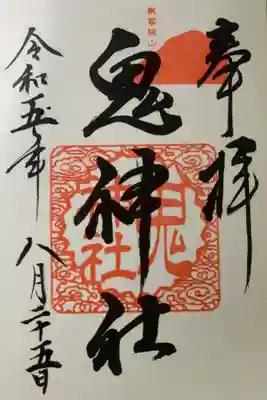 奉拝
鬼神社
鬼
神社
令和五年 八月二十五日